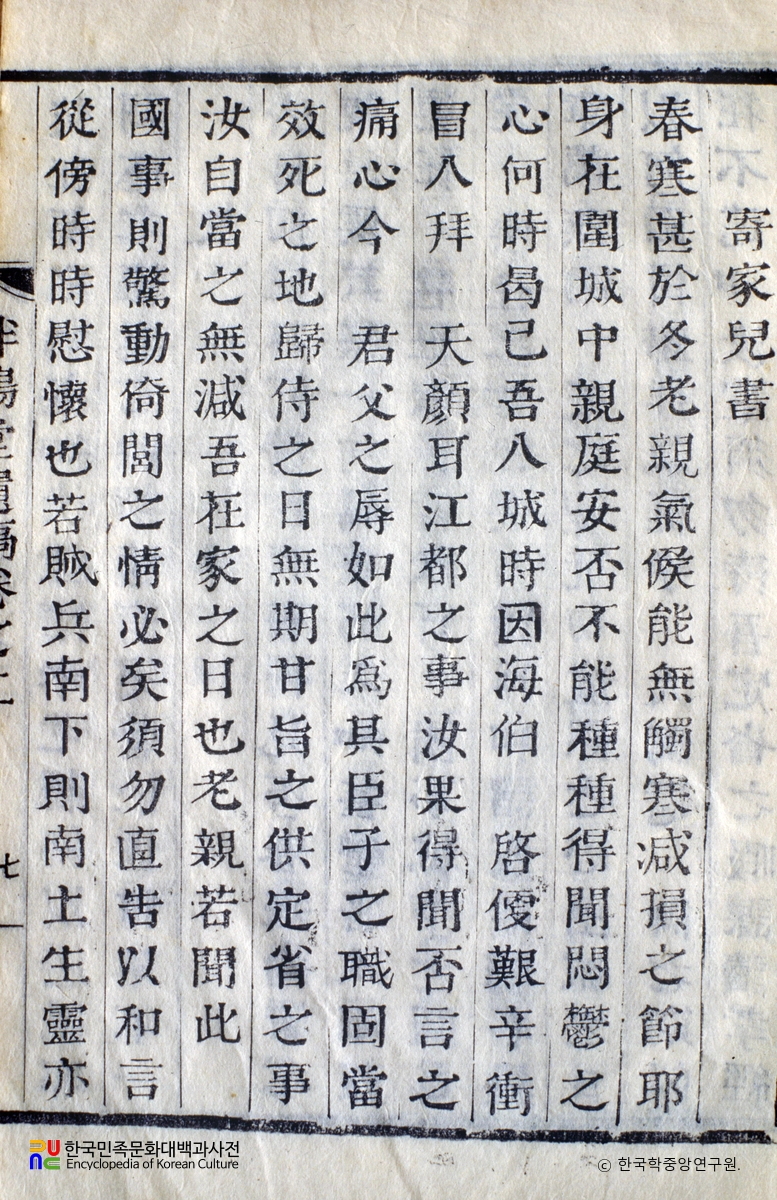 寄家兒書
春寒甚於冬老親氣候能無觸寒减損之節耶
身在圍城中親庭安否不能種種得聞悶鬱之
心何時曷已吾入城時因海伯 啓便艱辛衝
冒入拜 天顔耳江都之事汝果得聞否言之
痛心今 君父之辱如此爲其臣子之職固當
效死之地歸侍之日無期甘旨之供定省之事
汝自當之無减吾在家之日也老親若聞此
國事則驚動倚閭之情必矣須勿直告以和言
從傍時時慰懷也若賊兵南下則南土生靈亦
堂遺稿卷之二 七
한국민족문화대백과사전
Encyclopedia of Korean Culture
© 한국학중앙연구원.